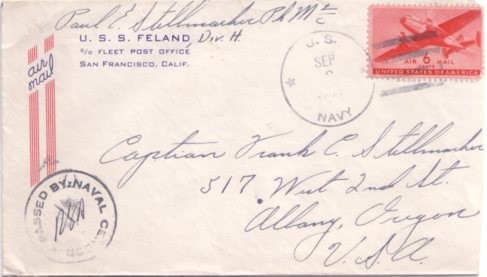 Paul E. Stellmacher PhM2/c
U. S. S. FELAND Div. H.
C/O FLEET POST OFFICE
SAN FRANCISCO, CALIF.
air mail
U. S.
SEP
NAVY
AIR 6 MAIL
CENTS
UNITED STATES OF AMERICA
Captian Frank C. Stellmacher
517 West 2nd St.
Albany, Oregon
U.S.A.
PASSED BY NAVAL CENSOR